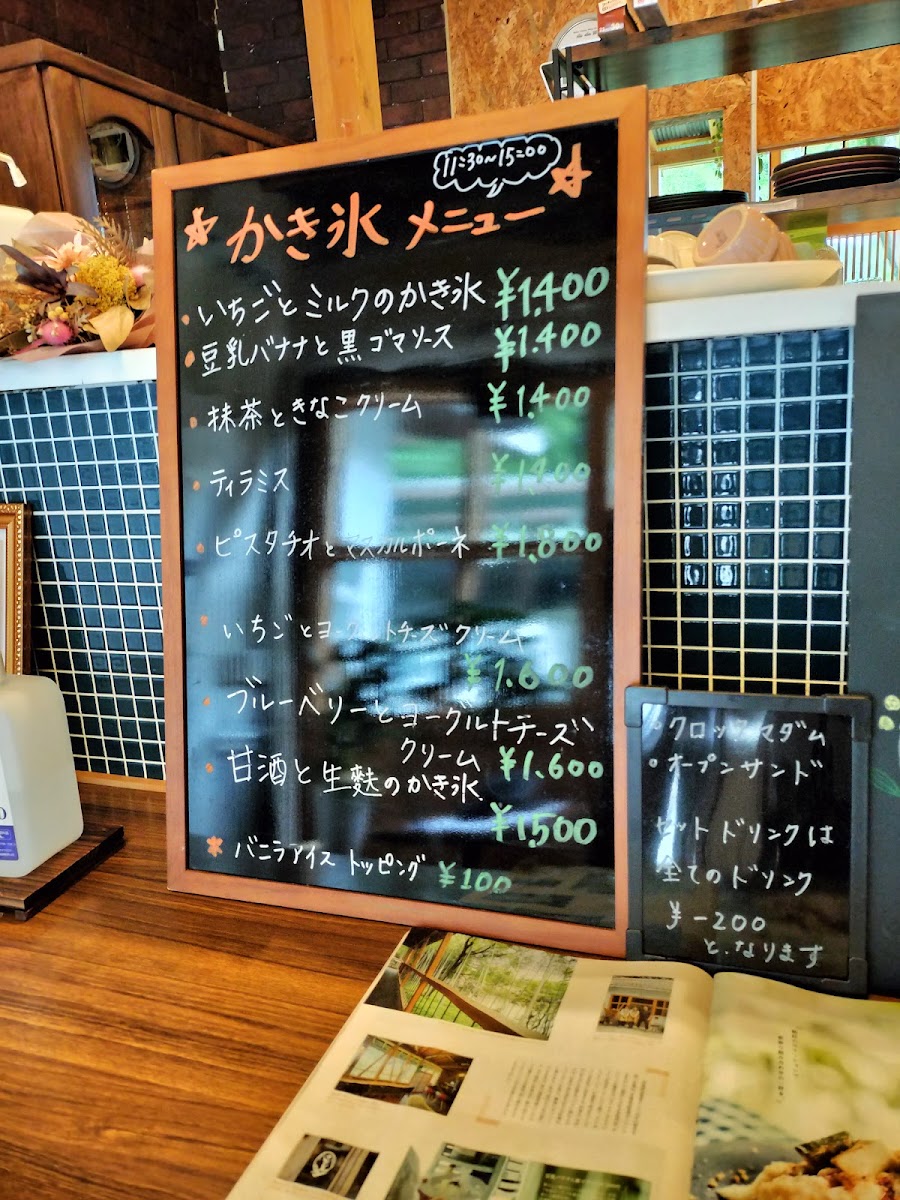 11:30~15:00
かき氷 メニュー
いちごとミルクのかき氷 ¥1,400
豆乳バナナと黒ゴマソース ¥1,400
抹茶ときなこクリーム ¥1,400
ティラミス ¥1,400
ピスタチオとマスカルポーネ ¥1,800
いちごとヨーグルトチーズクリーム
¥1,600
ブルーベリーとヨーグルトチーズ
クリーム ¥1,600
甘酒と生麩のかき氷
¥1,500
バニラアイス トッピング ¥100
クロックマダム
オープンサンド
セットドリンクは
全てのドリンク
¥-200
となります